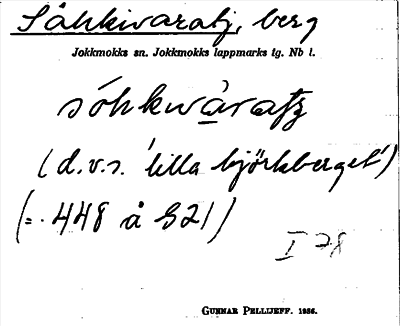 Såhkivaratj, berg
Jokkmokks sn. Jokkmokks lappmarks tg. Nb l.
sóhkwàratʒ
(d.v.s. 'lilla björkberget')
(= 448 å S21)
I 78
GUNNAR PELLIJEFF. 1956.